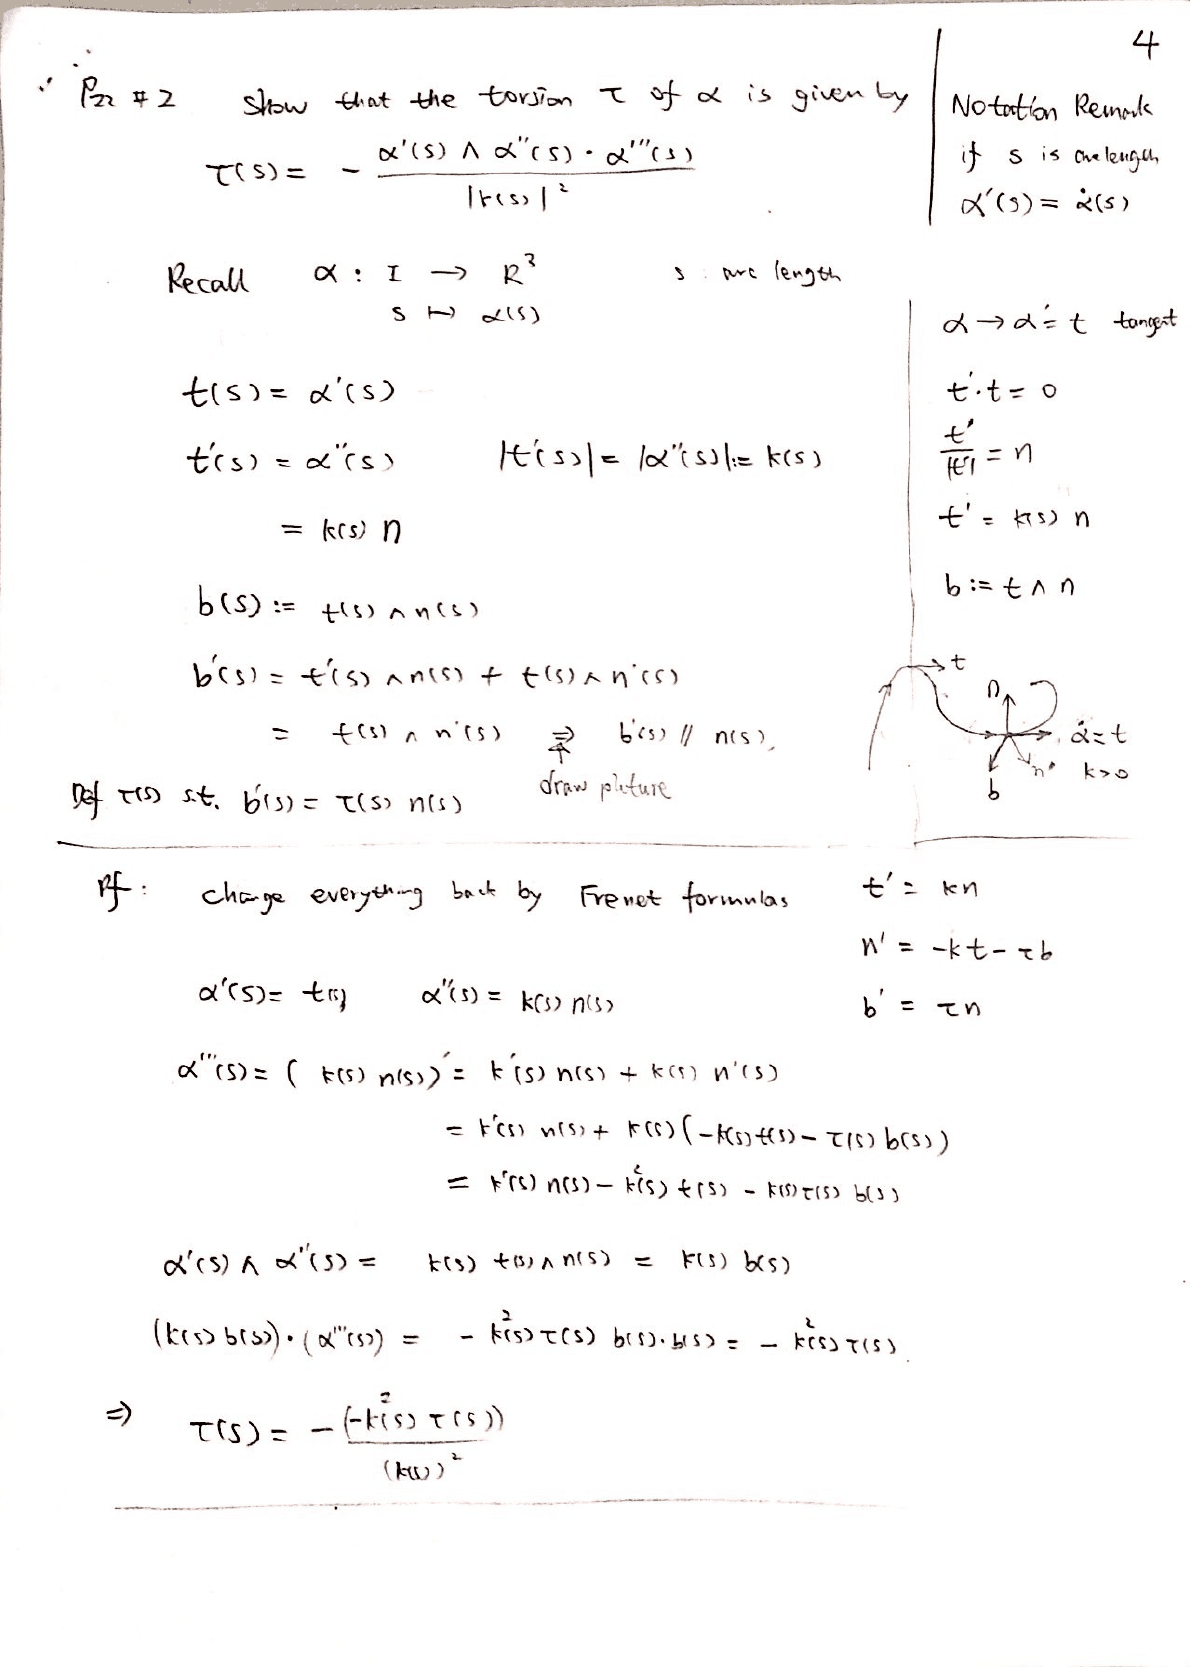 4
P22 # 2 Show that the torsion τ of α is given by
τ(s) = - α'(s) ∧ α''(s) · α'''(s) / |k(s)|²
Notation Remark
if s is arc length
α'(s) = α̇(s)
Recall α : I → R³ s : arc length
s ↦ α(s)
t(s) = α'(s)
t'(s) = α''(s) |t'(s)| = |α''(s)| := k(s)
= k(s) n
b(s) := t(s) ∧ n(s)
b'(s) = t'(s) ∧ n(s) + t(s) ∧ n'(s)
= t(s) ∧ n'(s) ⇒ b'(s) // n(s),
draw picture
Def τ(s) s.t. b'(s) = τ(s) n(s)
α → α' = t tangent
t'·t = 0
t' / |t'| = n
t' = k(s) n
b := t ∧ n
t
n
α̇ = t
n' k>0
b
Pf: change everything back by Frenet formulas
t' = kn
n' = -kt - τb
b' = τn
α'(s) = t(s) α''(s) = k(s) n(s)
α'''(s) = ( k(s) n(s))' = k'(s) n(s) + k(s) n'(s)
= k'(s) n(s) + k(s) (-k(s)t(s) - τ(s) b(s))
= k'(s) n(s) - k²(s) t(s) - k(s)τ(s) b(s)
α'(s) ∧ α''(s) = k(s) t(s) ∧ n(s) = k(s) b(s)
(k(s) b(s)) · (α'''(s)) = - k²(s) τ(s) b(s)·b(s) = - k²(s) τ(s)
⇒ τ(s) = - (-k²(s) τ(s)) / (k(s))²